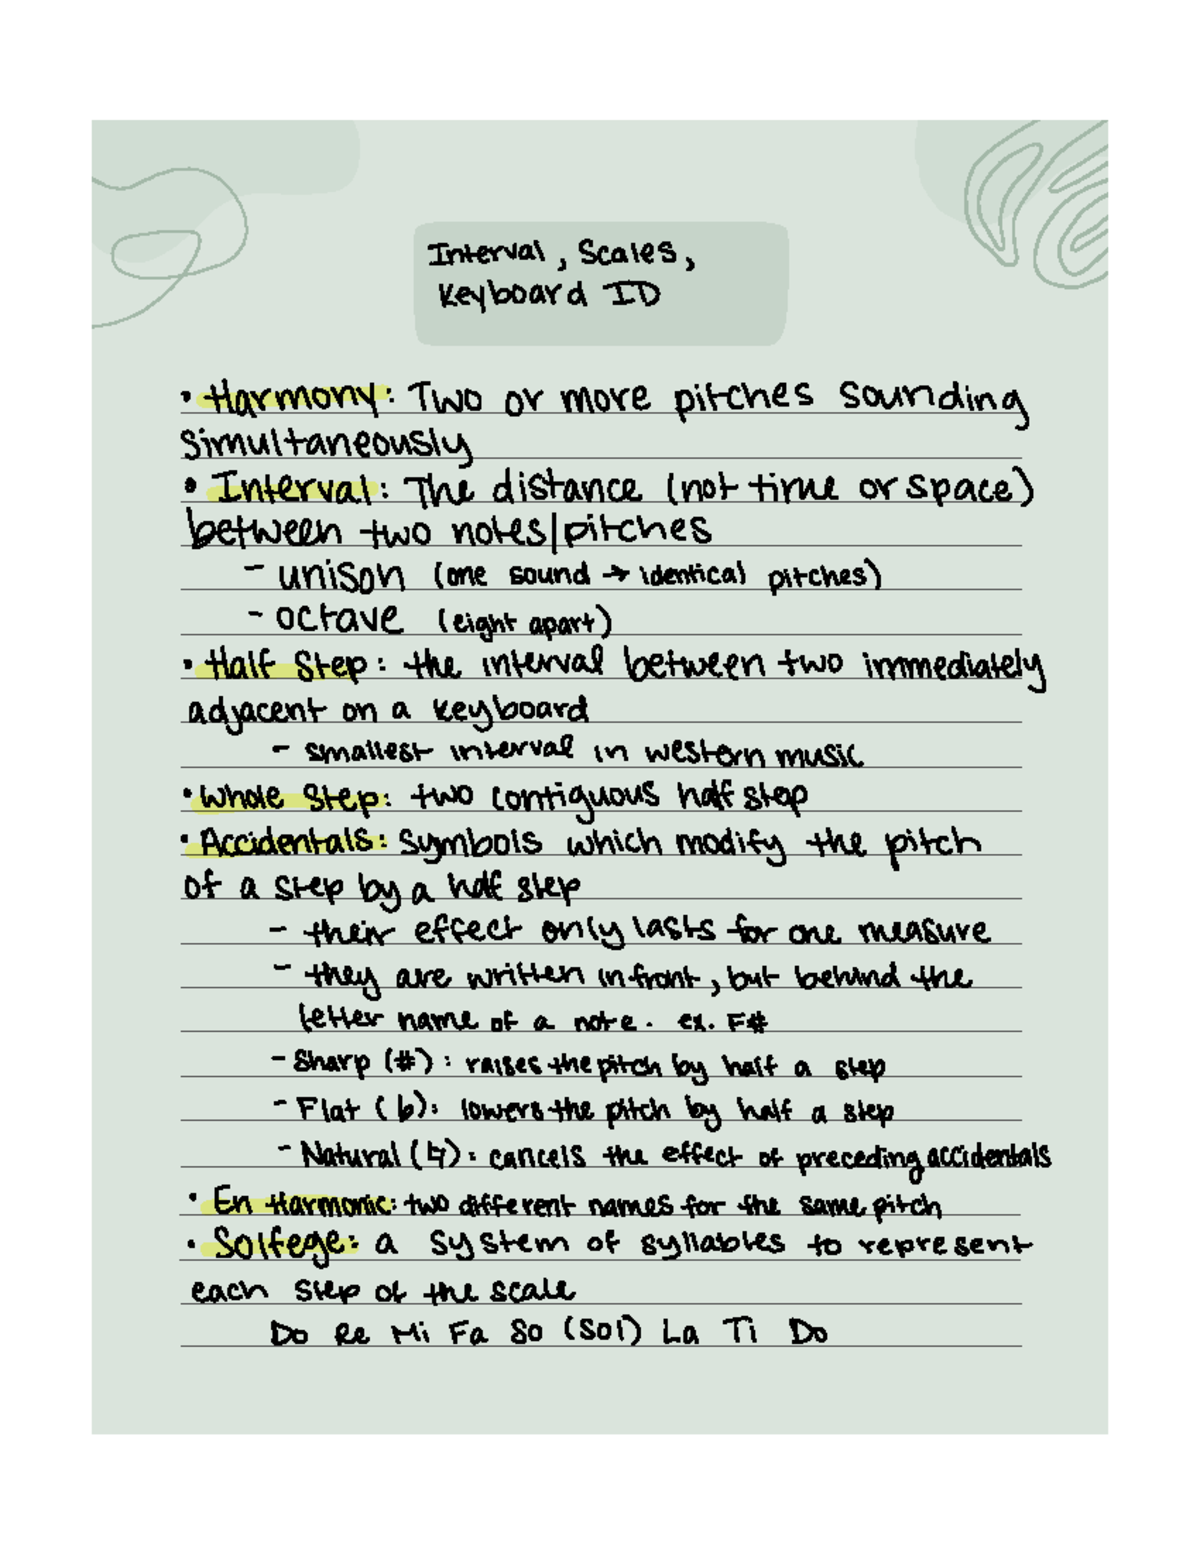 Interval, Scales,
Keyboard ID
• Harmony: Two or more pitches sounding
simultaneously
• Interval: The distance (not time or space)
between two notes/pitches
- unison (one sound → identical pitches)
- octave (eight apart)
• Half Step: the interval between two immediately
adjacent on a keyboard
- smallest interval in western music
• Whole Step: two contiguous half step
• Accidentals: Symbols which modify the pitch
of a step by a half step
- their effect only lasts for one measure
- they are written in front, but behind the
letter name of a note. ex. F#
- Sharp (#): raises the pitch by half a step
- Flat (b): lowers the pitch by half a step
- Natural (♮): cancels the effect of preceding accidentals
• En Harmonic: two different names for the same pitch
• Solfege: a system of syllables to represent
each step of the scale
Do Re Mi Fa So (Sol) La Ti Do